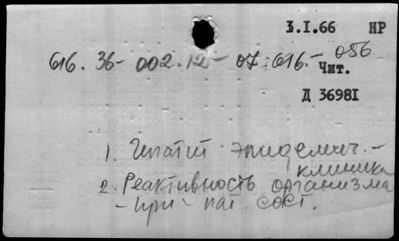 3.I.66 НР
616.36-002.12-07:616.-056
Чит.
Д 36981
1. Гепатит эпидемич. -
клиника
2. Реактивность организма
- при - пат. сост.